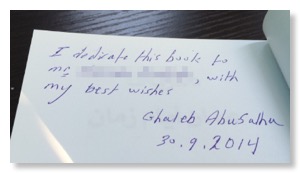 I dedicate this book to
mr , with
my best wishes
Ghaleb Abusalha
30.9.2014